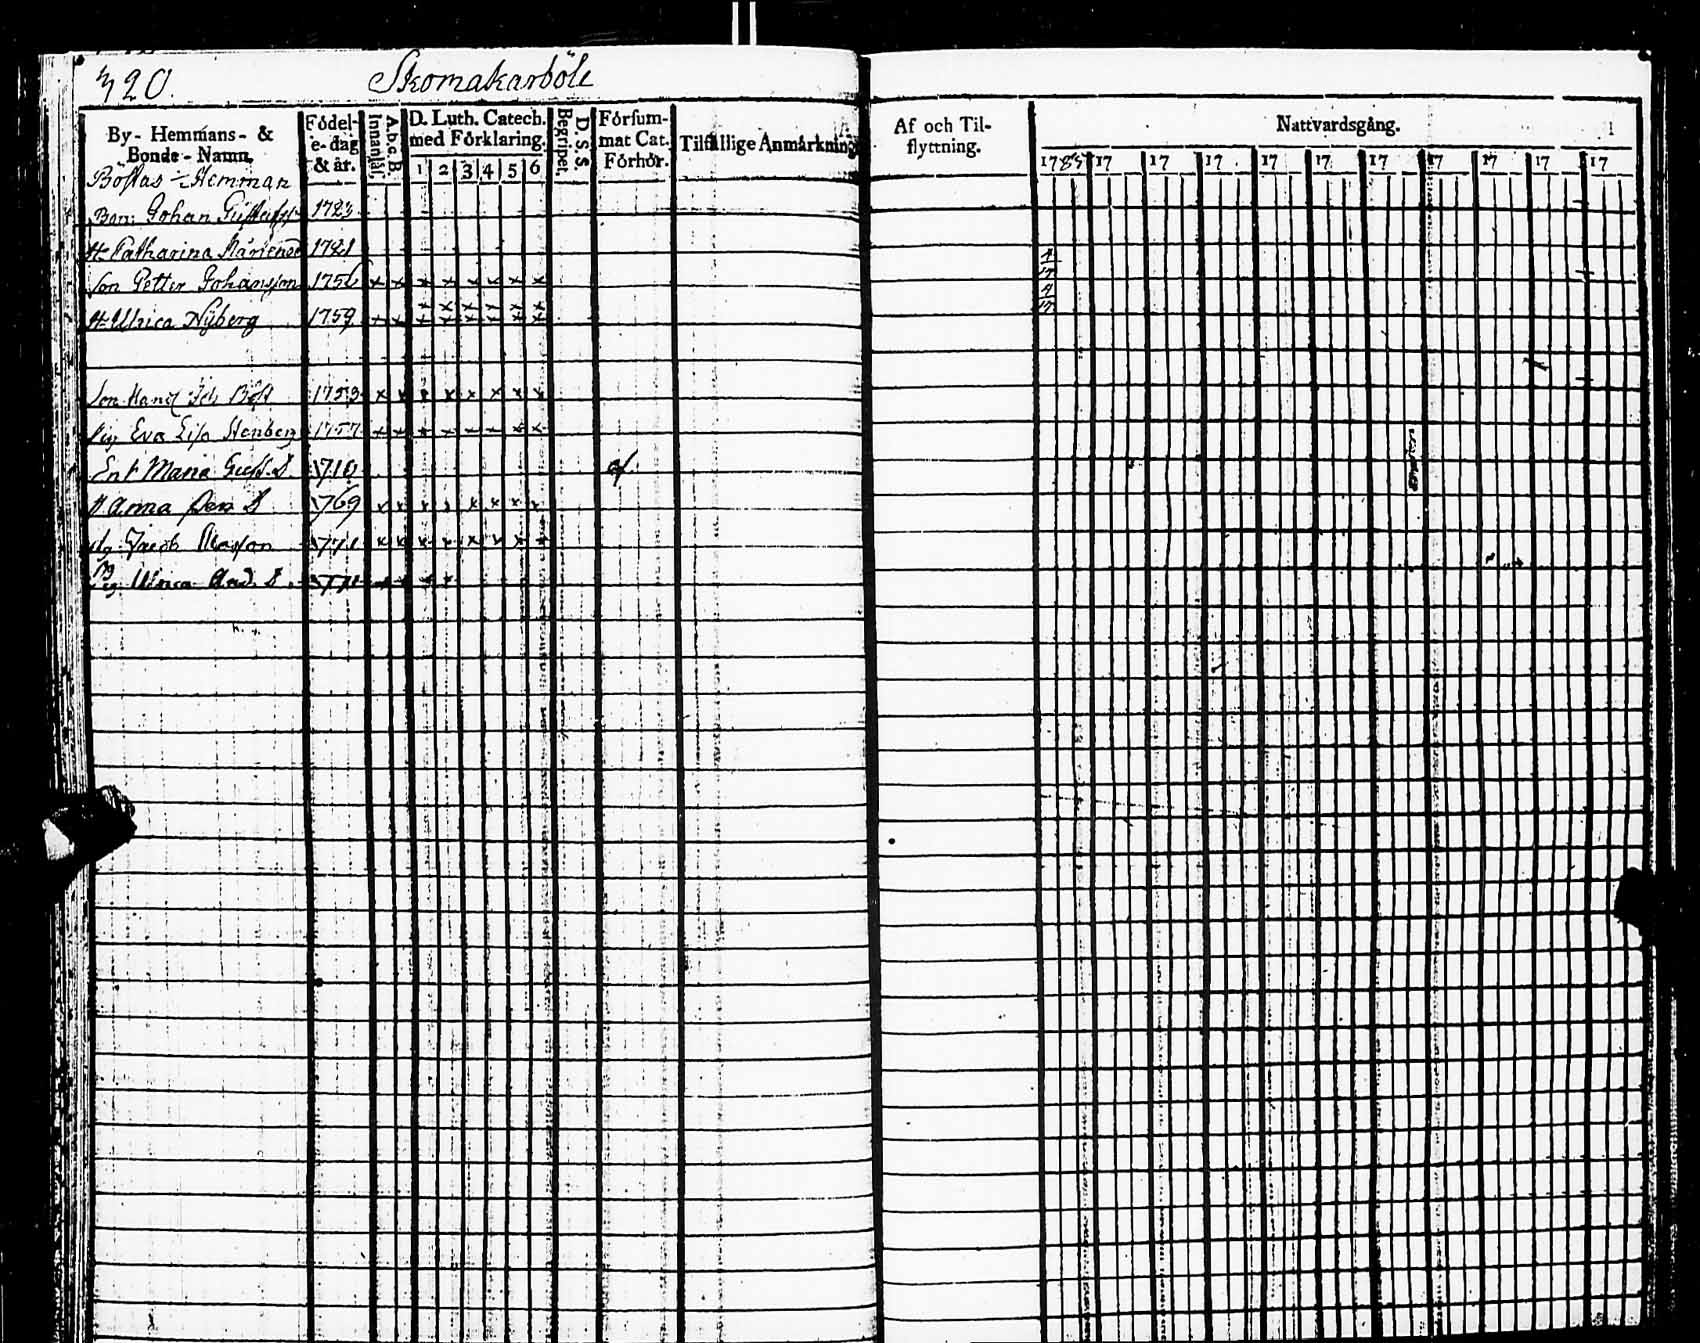 320. Skomakarböle
By- Hemmans- & Bonde-Namn.
Födel-e-dag & år.
Innanläs.
A.b.c.B
D. Luth. Catech. med Förklaring.
1 2 3 4 5 6
Begripet.
D. S. S.
Försum-mat Cat. Förhör.
Tilfällige Anmärkning
Af och Til-flyttning.
Nattvardsgång.
1785 17 17 17 17 17 17 17 17 17 17
Böstas Hemman
Bon: Johan Gustafss 1723
H. Catharina 1721
Son Petter Johansson 1756 x x x x x x x x
H. Ulrica Nyberg 1759 x x x x x x x x
Son Joh Böst 1753 x x x x x x x x
Pig Eva Lisa Stenberg 1757 x x x x x x x x
Enk Maria Gust. D. 1710
H Anna D 1769 x x x x x x x x
dg Jacob 1771 x x x x x x x x
Pig Ulrica And. D. x x x x